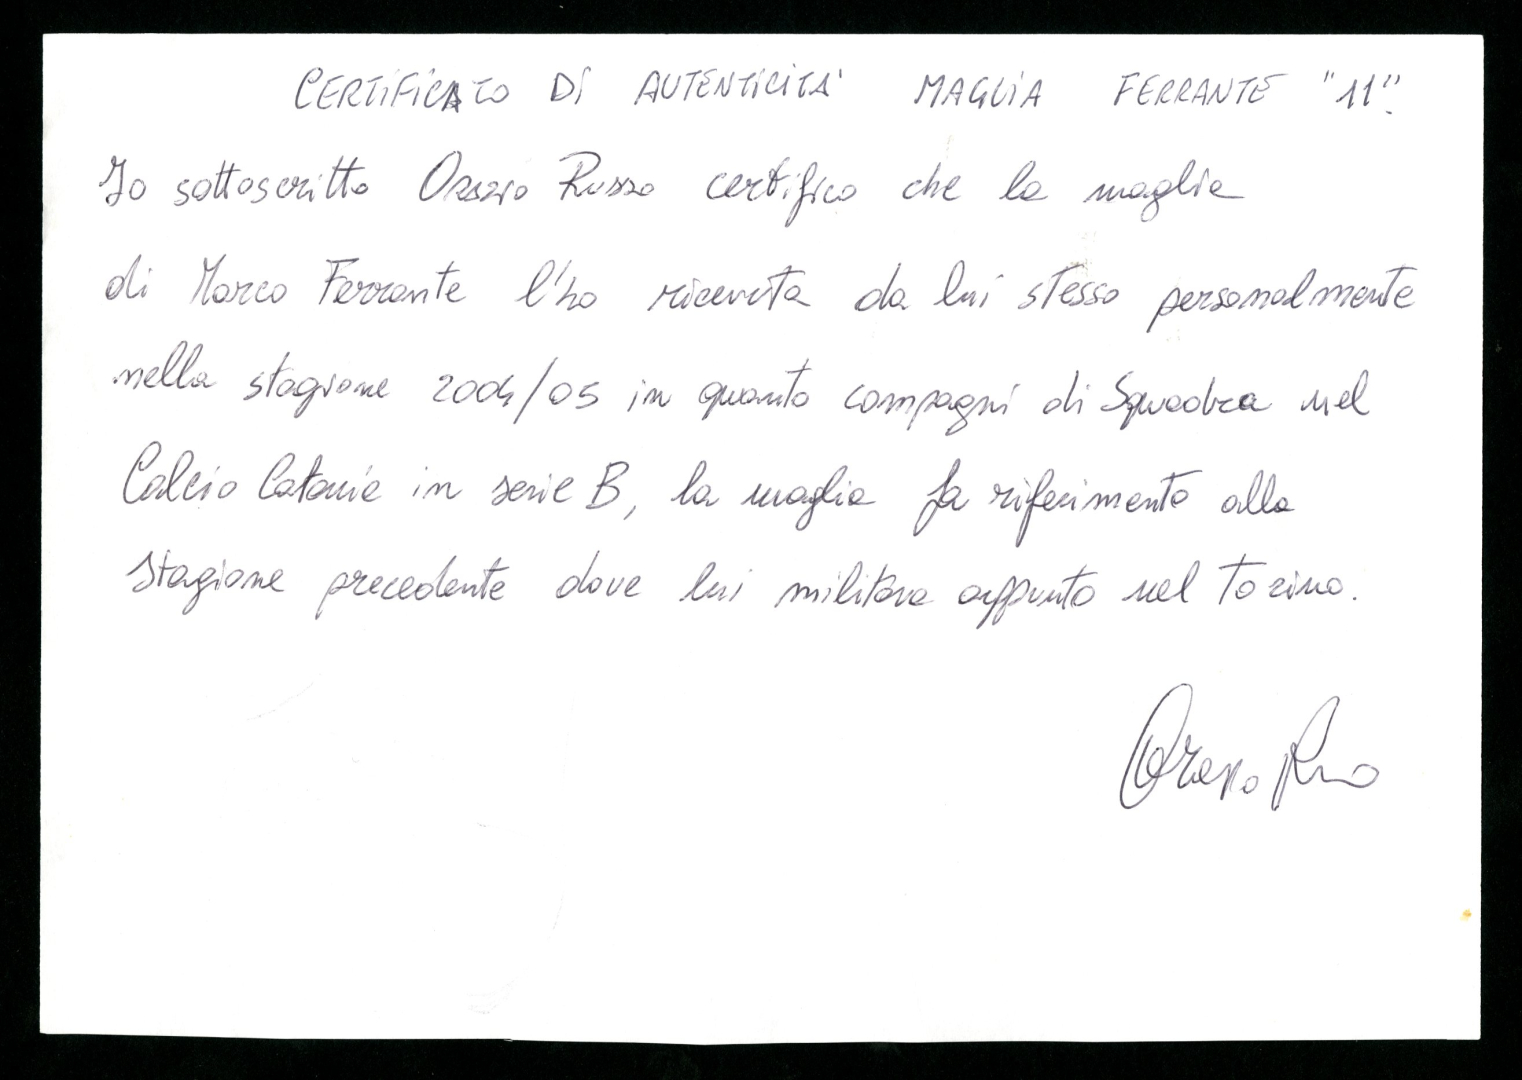 CERTIFICATO DI AUTENTICITA' MAGLIA FERRANTE "11".
Io sottoscritto Orazio Russo certifico che la maglia
di Marco Ferrante l'ho ricevuta da lui stesso personalmente
nella stagione 2004/05 in quanto compagni di Squadra nel
Calcio Catania in serie B, la maglia fa riferimento alla
stagione precedente dove lui militava appunto nel Torino.
Orazio Russo